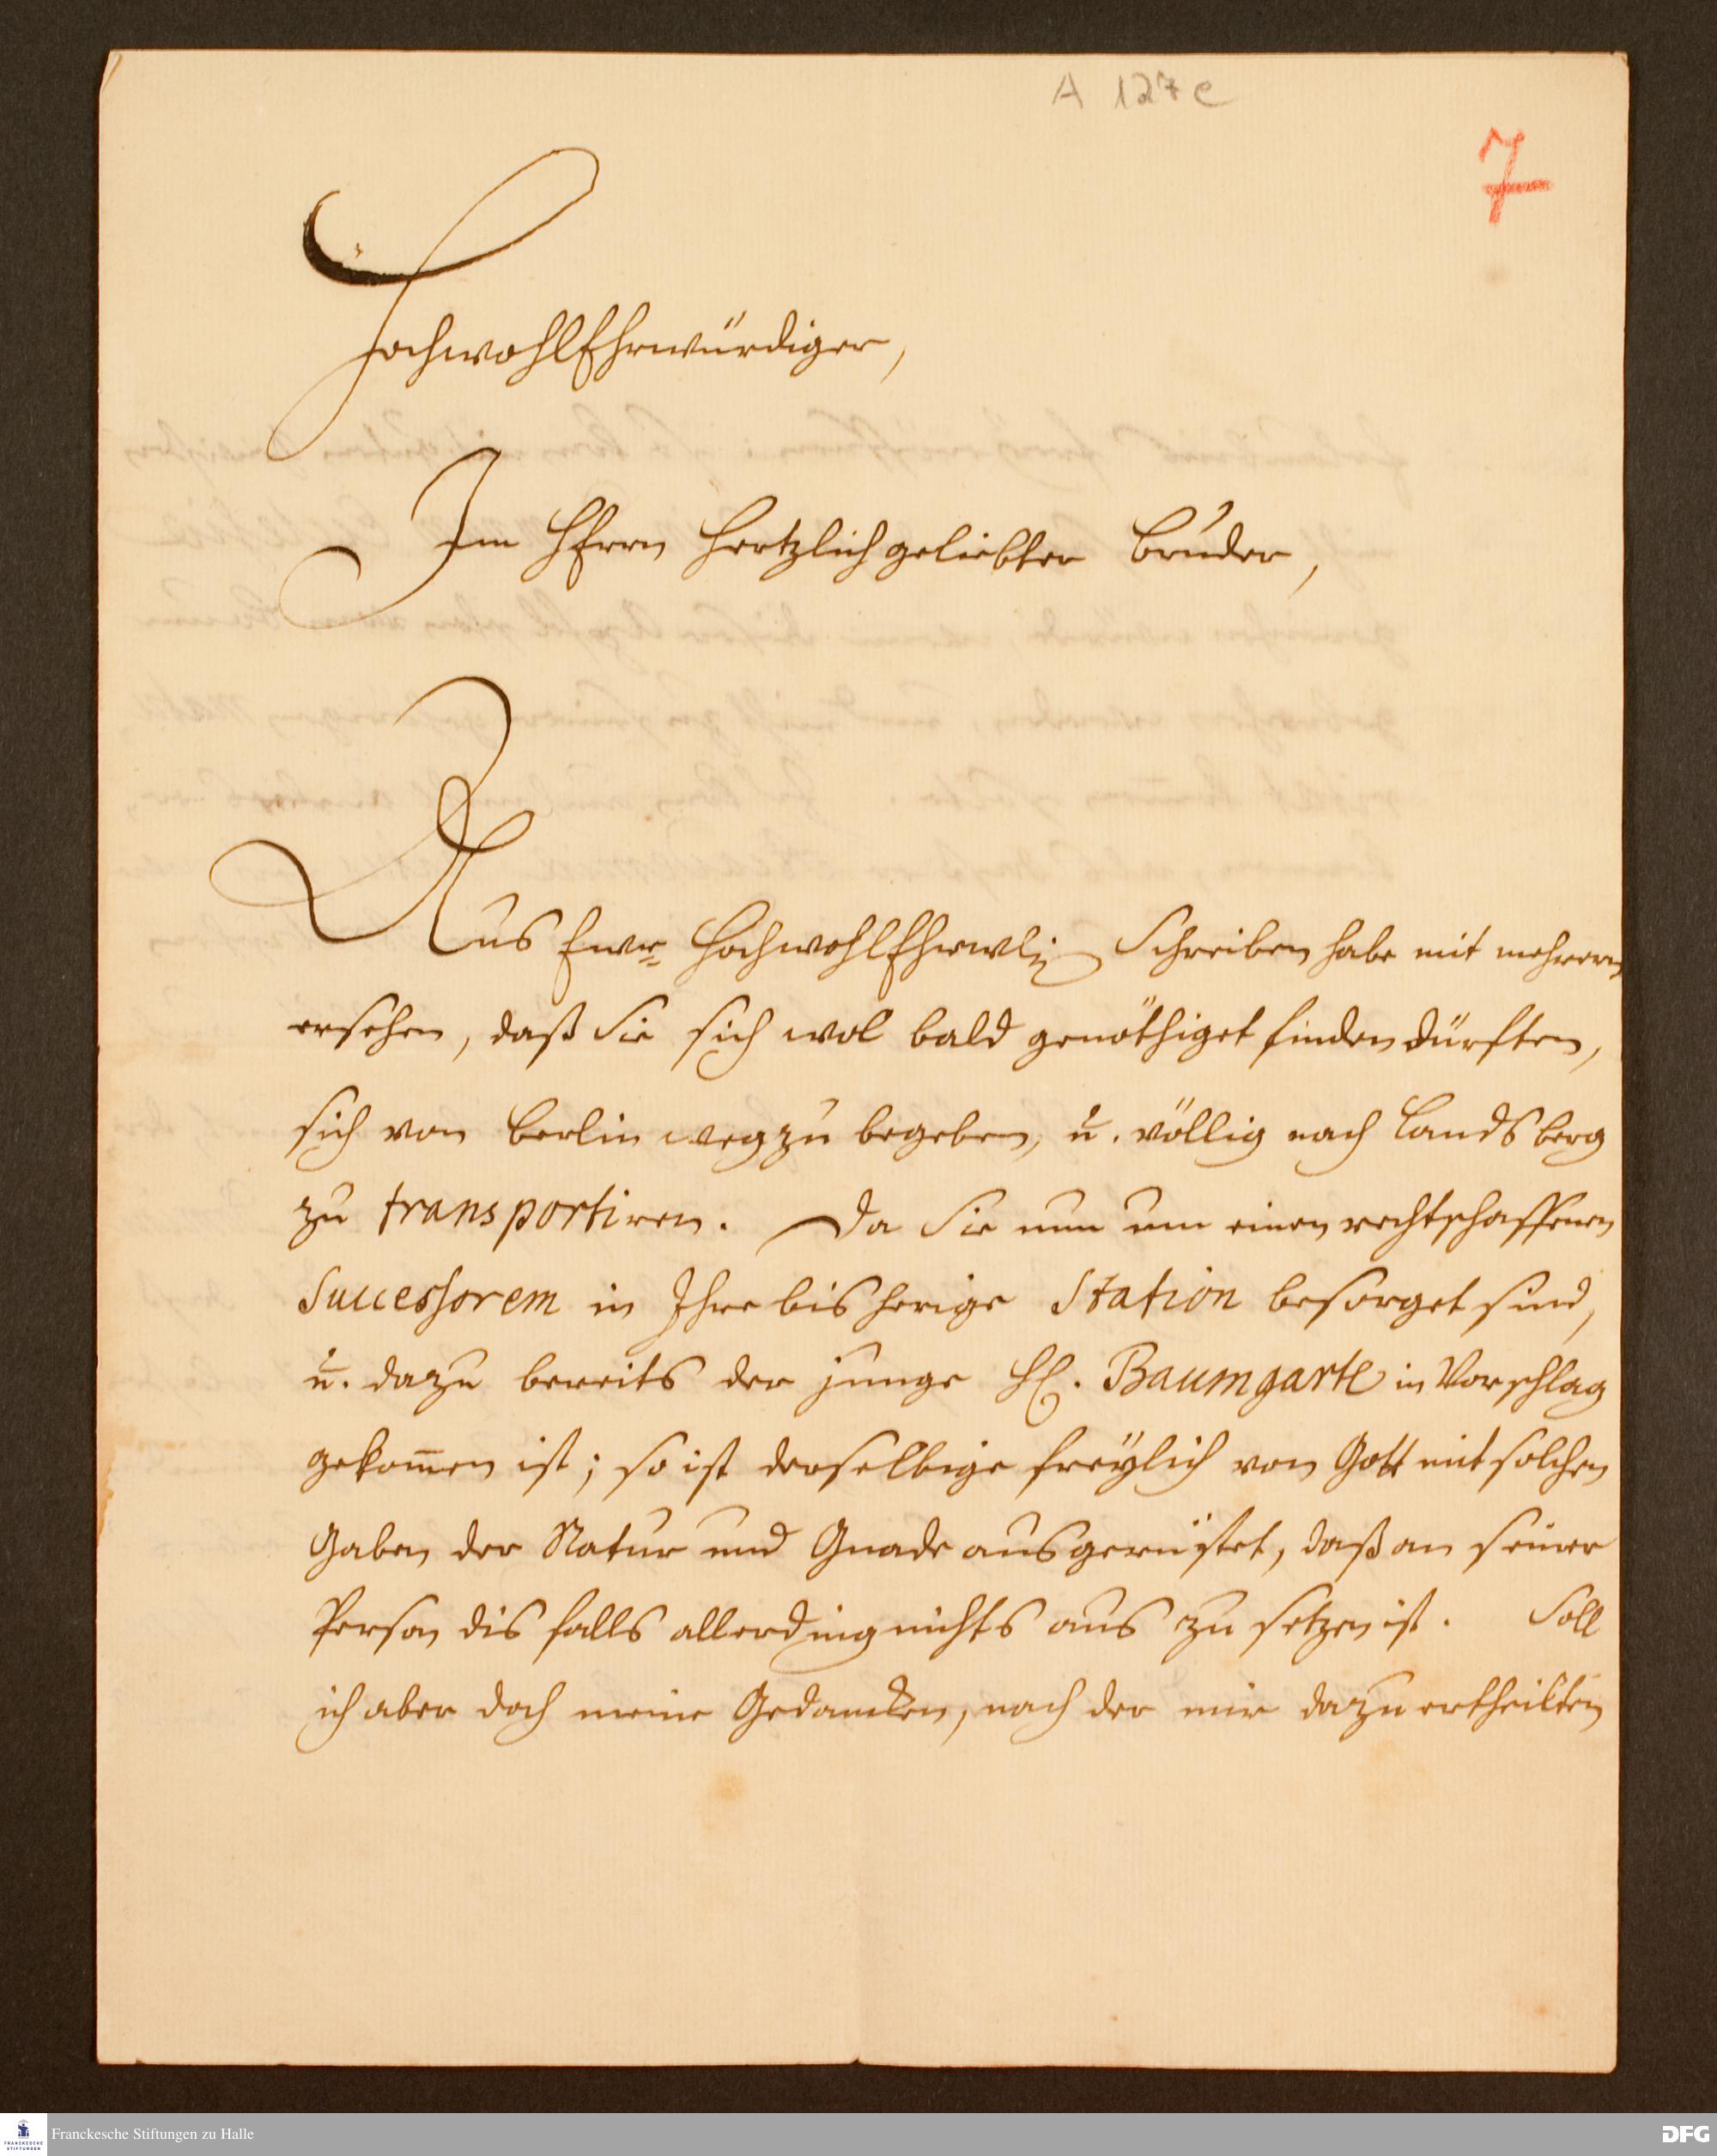 A 127 e
7
HochwohlEhrwürdiger,
Im HErrn Hertzlich geliebter Bruder,
Aus Ewr HochwohlEhrwl. Schreiben habe mit mehrern
ersehen, daß Sie sich wol bald genöthiget finden dürften,
sich von Berlin weg zu begeben, u. völlig nach Landsberg
zu transportiren. Da Sie nun um einen rechtschaffenen
Successorem in Ihre bisherige Station besorget sind,
u. dazu bereits der junge H. Baumgarte in Vorschlag
gekom̄en ist; so ist derselbige freÿlich von Gott mit solchen
Gaben der Natur und Gnade ausgerüstet, daß an seiner
Person dis falls allerding nichts aus zu setzen ist. Soll
ich aber doch meine Gedancken, nach der mir dazu ertheilten
FRANCKESCHE STIFTUNGEN
Franckesche Stiftungen zu Halle
DFG